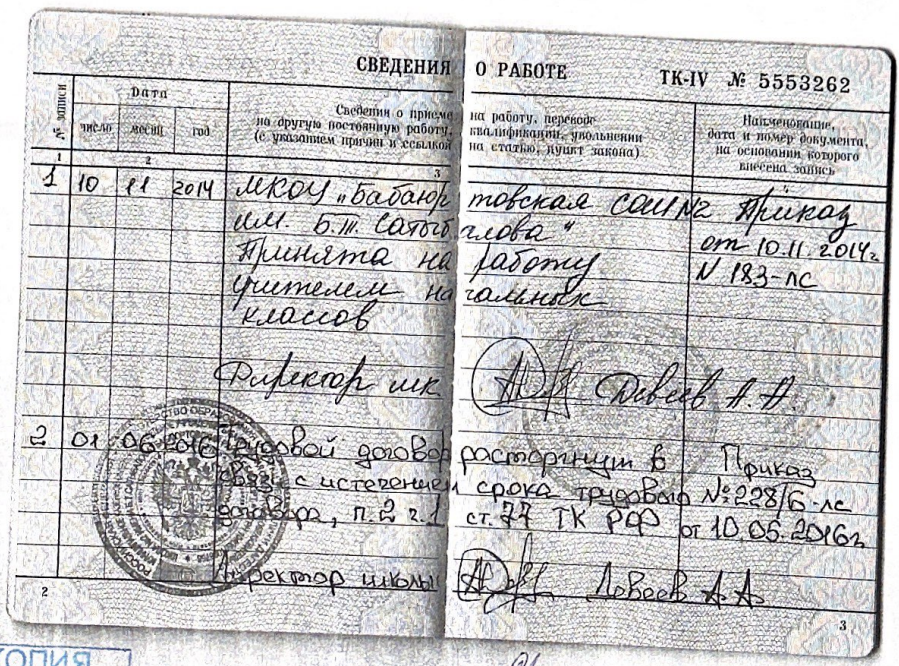 СВЕДЕНИЯ О РАБОТЕ ТК-IV № 5553262
№ записи
Дата
число месяц год
Сведения о приеме на работу, переводе
на другую постоянную работу, квалификации, увольнении
(с указанием причин и ссылкой на статью, пункт закона)
Наименование,
дата и номер документа,
на основании которого
внесена запись
1 2 3
1 10 11 2014 МКОУ „Бабаюртовская СОШ №2 Приказ
им. Б.Т. Сатыбалова“ от 10.11.2014г
Принята на работу N 183-лс
учителем начальных
классов
Директор шк Девеев А.А.
2 01 06 2016 Трудовой договор расторгнут в Приказ
связи с истечением срока трудового №228/6-лс
договора, п.2 ч.1 ст. 77 ТК РФ от 10.05.2016г
Директор школы Девеев А.А
2 3
КОПИЯ